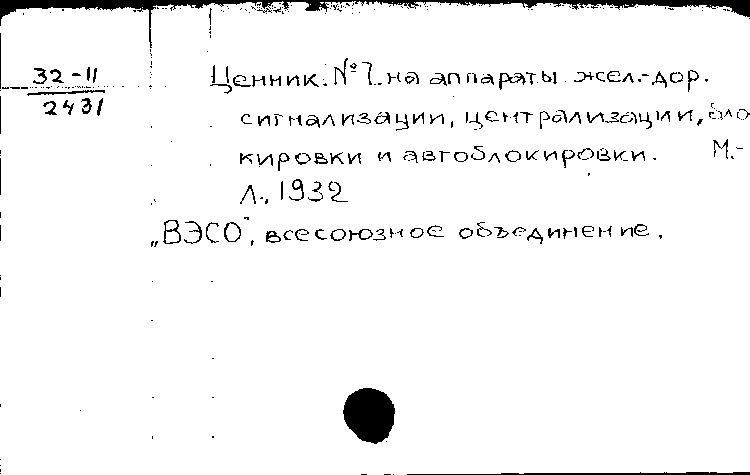 32-11
2431
Ценник. № 7. на аппараты жел.-дор.
сигнализации, централизации, бло
кировки и автоблокировки. М.-
Л., 1932
„ВЭСО", всесоюзное объединение.